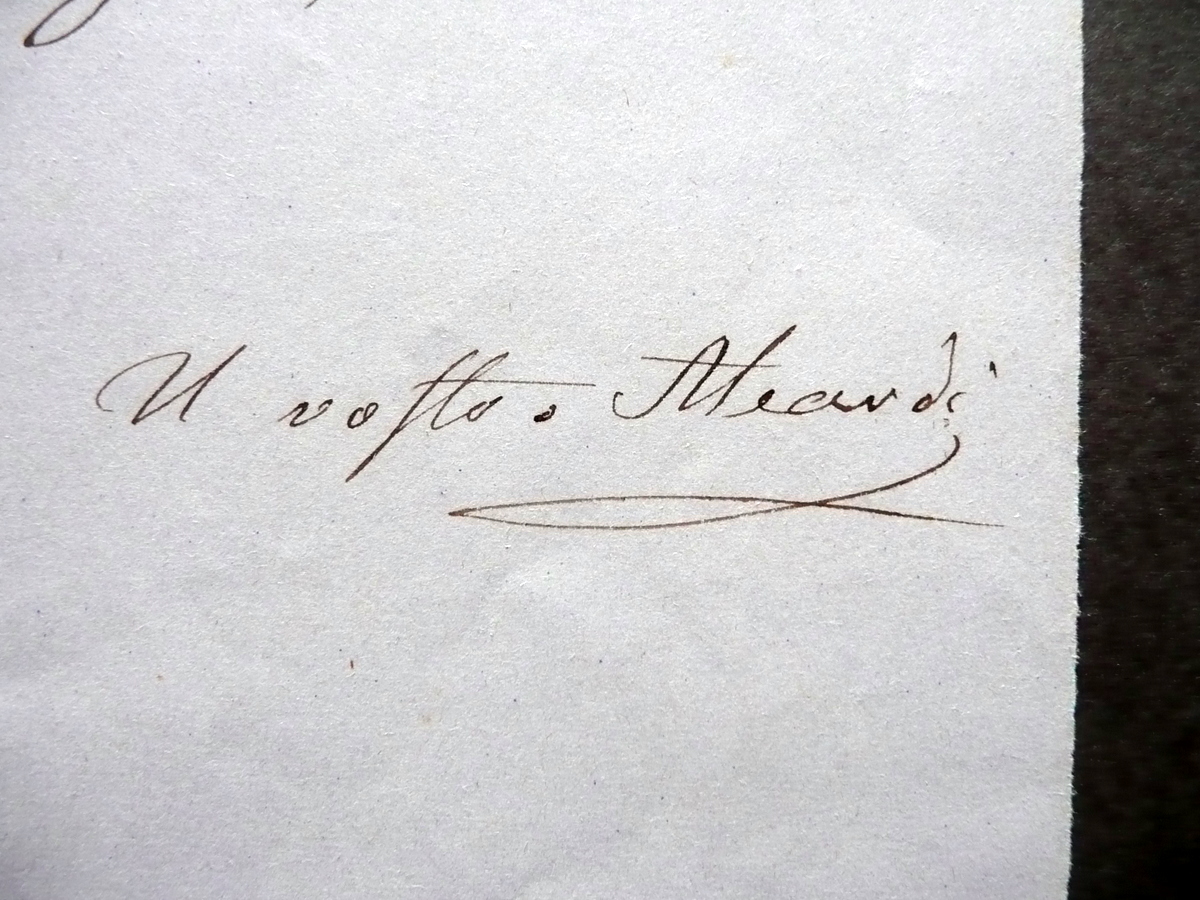 Il vostro Aleardi